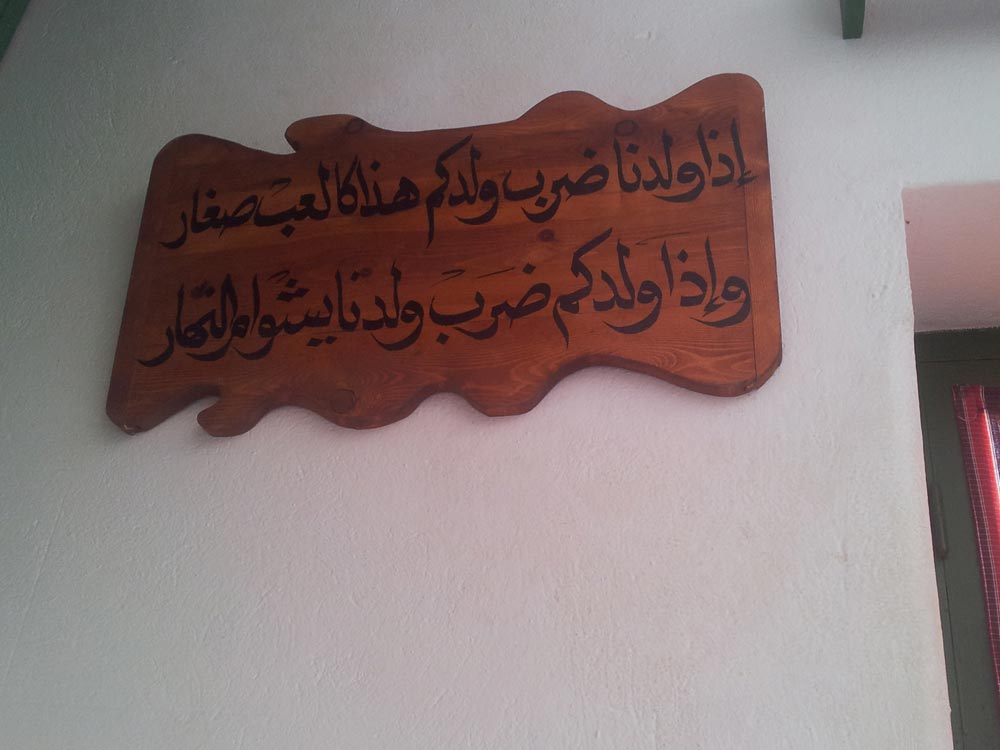 إذا ولدنا ضرب ولدكم هذاكا لعب صغار
وإذا ولدكم ضرب ولدنا يشوام النهار